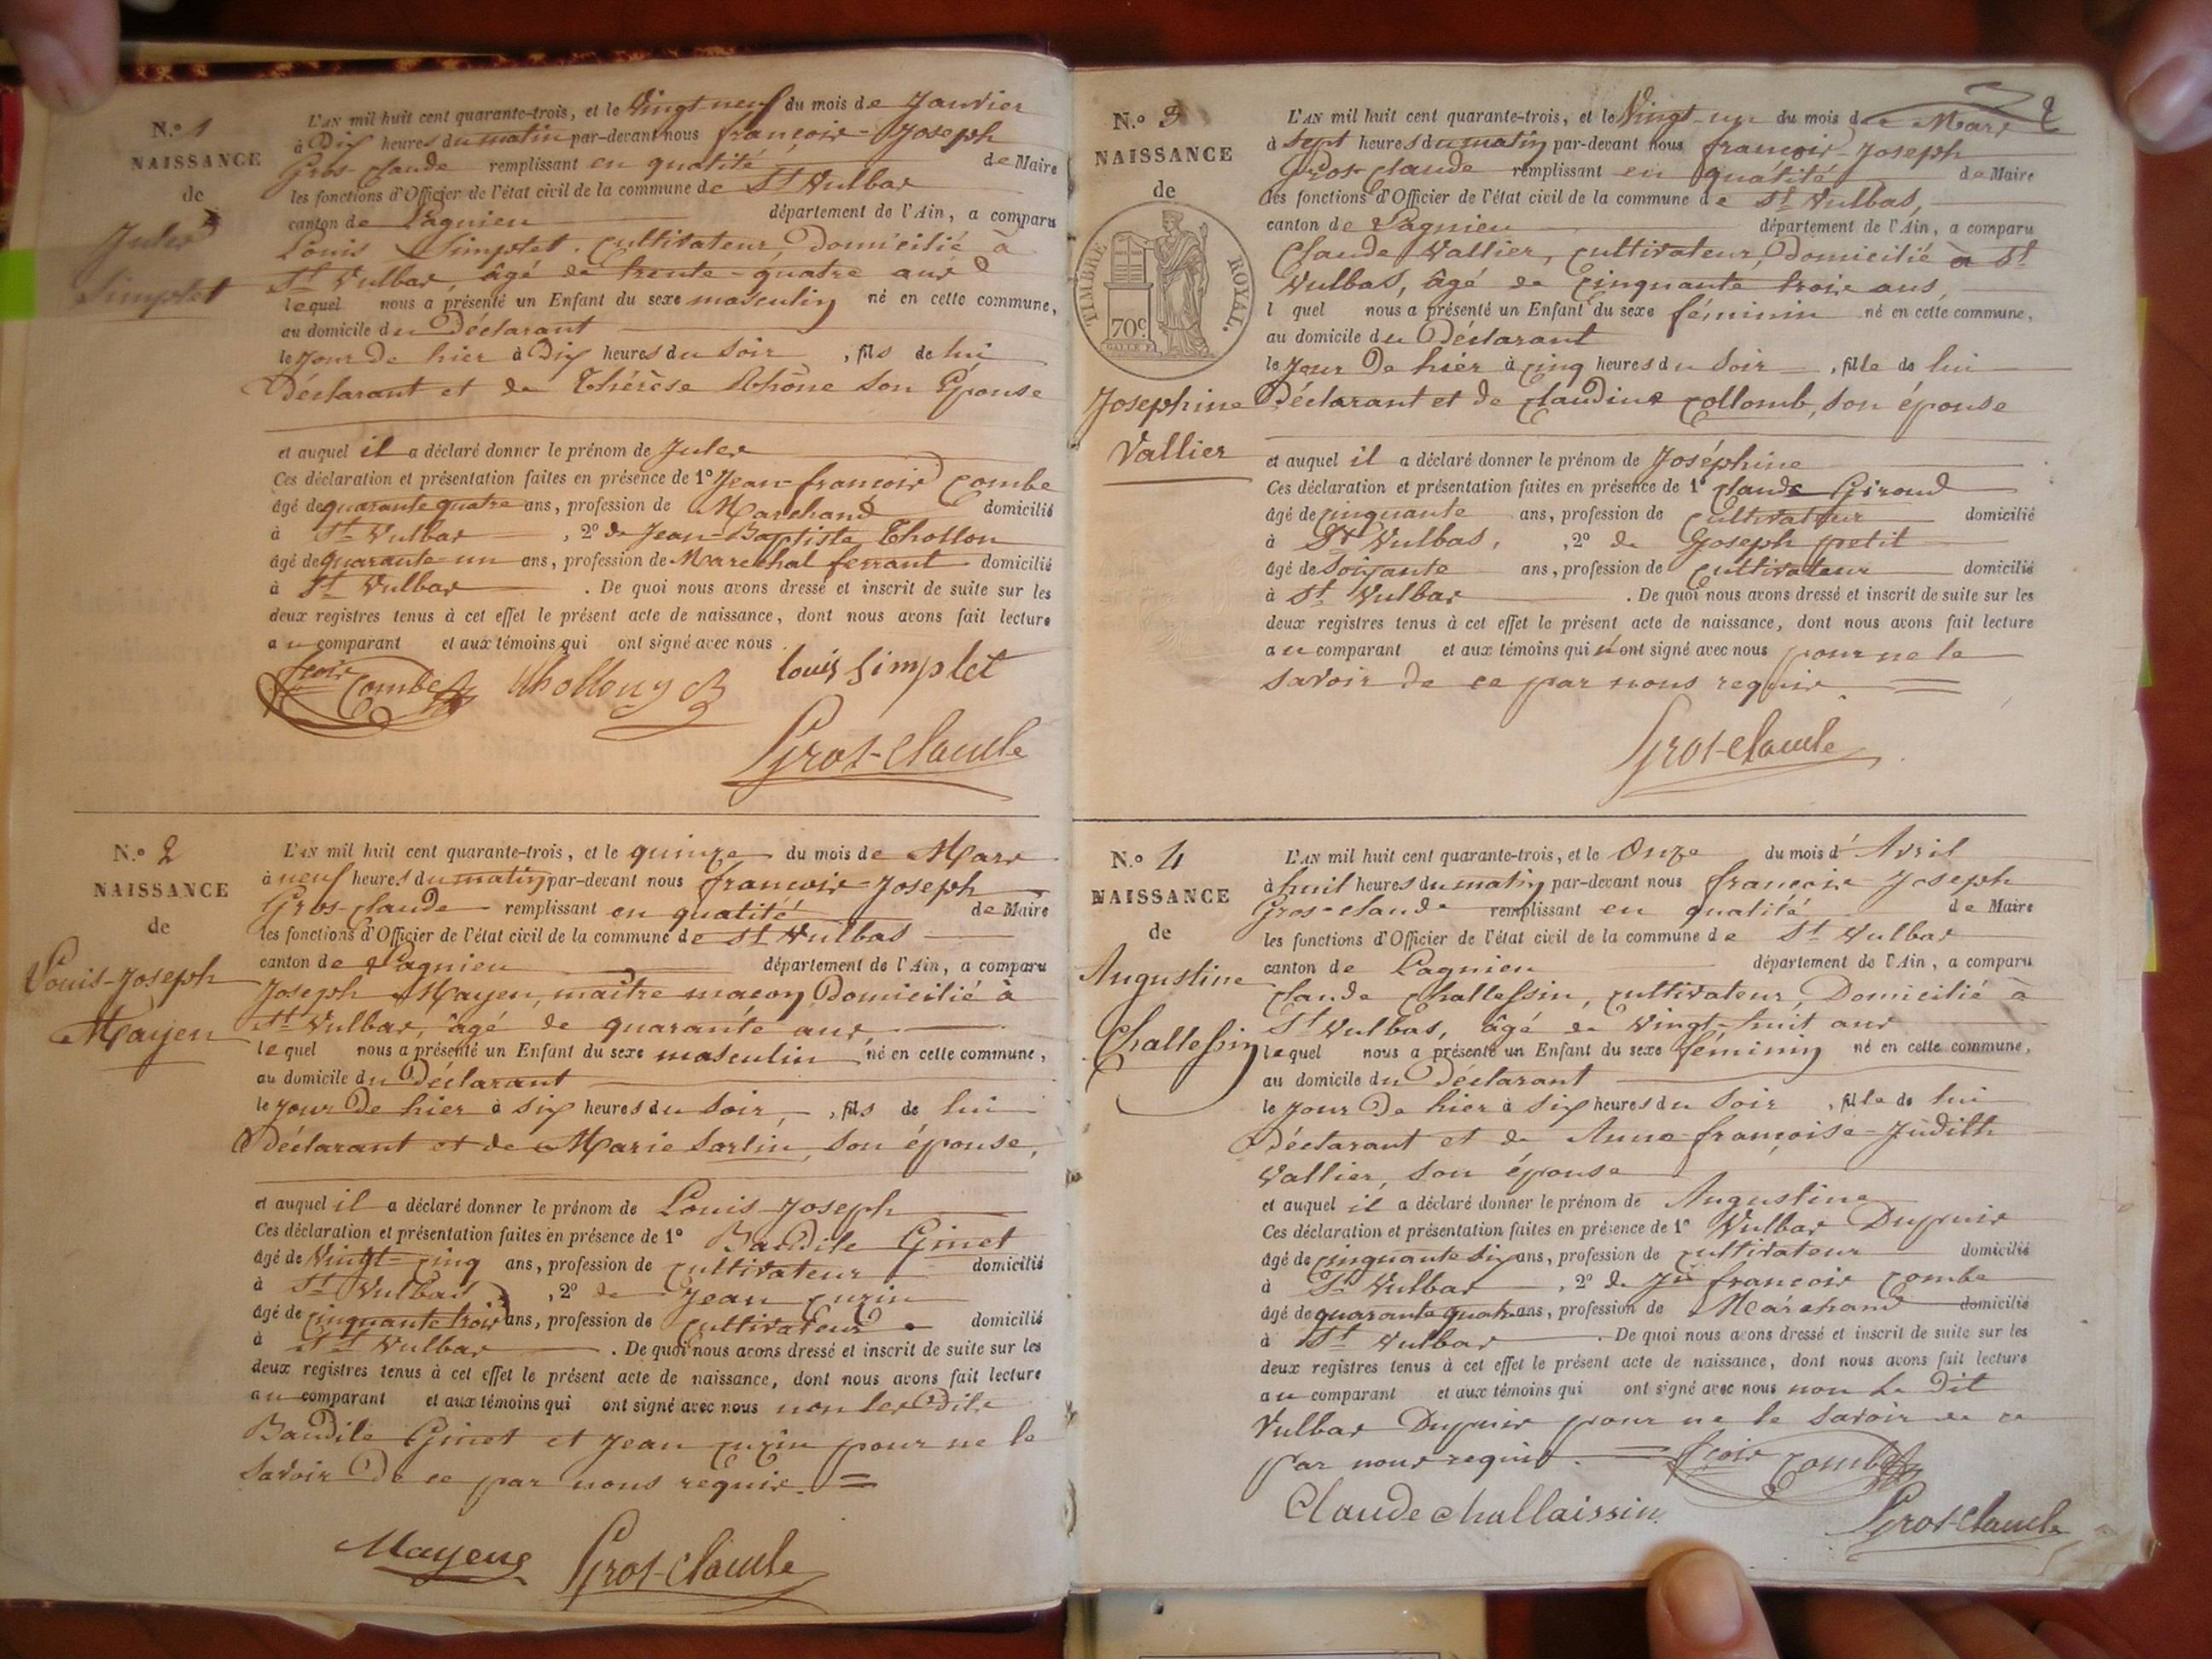 N.º 1
NAISSANCE
de
Jules
Simplet
L'AN mil huit cent quarante-trois, et le Vingt neuf du mois de Janvier
à Dix heures du matin par-devant nous françois-Joseph
Gros-claude remplissant en qualité de Maire
les fonctions d'Officier de l'état civil de la commune de St Vulbas
canton de Lagnieu département de l'Ain, a comparu
Louis Simplet. cultivateur, Domicilié à
St Vulbas, âgé de trente-quatre ans
lequel nous a présenté un Enfant du sexe masculin né en cette commune,
au domicile du Déclarant
le jour De hier à Dix heures du Soir, fils de lui
Déclarant et de Thérèse Rhône son Epouse
et auquel il a déclaré donner le prénom de Jules
Ces déclaration et présentation faites en présence de 1º Jean-françois Combe
âgé de quarante quatre ans, profession de Marchand domicilié
à St Vulbas, 2º de Jean-Baptiste Thollon
âgé de quarante-un ans, profession de Marechal ferrant domicilié
à St Vulbas. De quoi nous avons dressé et inscrit de suite sur les
deux registres tenus à cet effet le présent acte de naissance, dont nous avons fait lecture
au comparant et aux témoins qui ont signé avec nous
fçois Combe louis Simplet
Gros-Claude
N.º 2
NAISSANCE
de
Louis-Joseph
Mayen
L'AN mil huit cent quarante-trois, et le quinze du mois de Mars
à neuf heures du matin par-devant nous françois-Joseph
Gros-claude remplissant en qualité de Maire
les fonctions d'Officier de l'état civil de la commune de St Vulbas
canton de Lagnieu département de l'Ain, a comparu
Joseph Mayen, maître maçon, Domicilié à
St Vulbas, âgé de quarante ans,
lequel nous a présenté un Enfant du sexe masculin né en cette commune,
au domicile du Déclarant
le jour De hier à six heures du Soir, fils de lui
Déclarant et de Marie Sarlin, son épouse,
et auquel il a déclaré donner le prénom de Louis-Joseph
Ces déclaration et présentation faites en présence de 1º Baudile Ginet
âgé de Vingt-cinq ans, profession de cultivateur domicilié
à St Vulbas, 2º de Jean cuzin
âgé de cinquante trois ans, profession de cultivateur domicilié
à St Vulbas. De quoi nous avons dressé et inscrit de suite sur les
deux registres tenus à cet effet le présent acte de naissance, dont nous avons fait lecture
au comparant et aux témoins qui ont signé avec nous non les Dits
Baudile Ginet et Jean cuzin pour ne le
Savoir De ce par nous requis.
Mayen Gros-Claude
2
N.º 3
NAISSANCE
de
TIMBRE ROYAL.
70c.
Josephine
Vallier
L'AN mil huit cent quarante-trois, et le Vingt-un du mois de Mars
à sept heures du matin par-devant nous françois-Joseph
Gros-claude remplissant en qualité de Maire
les fonctions d'Officier de l'état civil de la commune de St Vulbas,
canton de Lagnieu département de l'Ain, a comparu
Claude Vallier, cultivateur, Domicilié à St
Vulbas, âgé de Cinquante trois ans,
l quel nous a présenté un Enfant du sexe féminin né en cette commune,
au domicile du Déclarant
le jour De hier à cinq heures du Soir, fille de lui
Déclarant et de claudine collomb, son épouse
et auquel il a déclaré donner le prénom de Joséphine
Ces déclaration et présentation faites en présence de 1º claude Giroud
âgé de cinquante ans, profession de cultivateur domicilié
à St Vulbas, 2º de Joseph petit
âgé de Soixante ans, profession de cultivateur domicilié
à St Vulbas. De quoi nous avons dressé et inscrit de suite sur les
deux registres tenus à cet effet le présent acte de naissance, dont nous avons fait lecture
au comparant et aux témoins qui n'ont signé avec nous pour ne le
savoir De ce par nous requis
Gros-Claude
N.º 4
NAISSANCE
de
Augustine
Challessin
L'AN mil huit cent quarante-trois, et le Onze du mois d'Avril
à huit heures du matin par-devant nous françois Joseph
Gros-claude remplissant en qualité de Maire
les fonctions d'Officier de l'état civil de la commune de St Vulbas
canton de Lagnieu département de l'Ain, a comparu
claude challessin, cultivateur, Domicilié à
St Vulbas, âgé de Vingt-huit ans
lequel nous a présenté un Enfant du sexe féminin né en cette commune,
au domicile du Déclarant
le jour De hier à six heures du Soir, fille de lui
Déclarant et de Anne-françoise-Judith
Vallier, son épouse
et auquel il a déclaré donner le prénom de Augustine
Ces déclaration et présentation faites en présence de 1º Vulbas Dupuis
âgé de cinquante six ans, profession de cultivateur domicilié
à St Vulbas, 2º de Jn françois Combe
âgé de quarante quatre ans, profession de Marchand domicilié
à St Vulbas. De quoi nous avons dressé et inscrit de suite sur les
deux registres tenus à cet effet le présent acte de naissance, dont nous avons fait lecture
au comparant et aux témoins qui ont signé avec nous non le Dit
Vulbas Dupuis pour ne le Savoir de ce
par nous requis. fçois Combe
Claude challaissin Gros-Claude